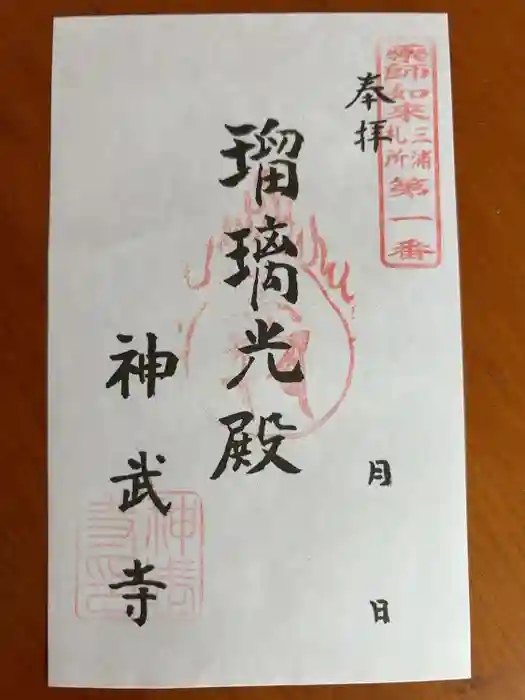 薬師如来
三浦
札所
第一番
奉拝
瑠璃光殿
月 日
神武寺